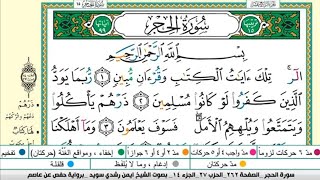 سُورَةُ الْحِجْرِ
بِسْمِ اللَّهِ الرَّحْمَٰنِ الرَّحِيمِ
الٓر ۚ تِلْكَ ءَايَٰتُ ٱلْكِتَٰبِ وَقُرْءَانٍ مُّبِينٍ ۝١ رُّبَمَا يَوَدُّ
ٱلَّذِينَ كَفَرُوا۟ لَوْ كَانُوا۟ مُسْلِمِينَ ۝٢ ذَرْهُمْ يَأْكُلُوا۟
وَيَتَمَتَّعُوا۟ وَيُلْهِهِمُ ٱلْأَمَلُ ۖ فَسَوْفَ يَعْلَمُونَ ۝٣ وَمَآ أَهْلَكْنَا
مدّ ٦ حركات لزوماً مدّ ٢ أو ٤ أو ٦ جوازاً إخفاء، ومواقع الغُنَّة (حركتان) تفخيم
مدّ حركتان إدغام، وما لا يُلفظ قلقلة
سورة الحجر، الصفحة ٢٦٢، الجزء ١٤، بصوت الشيخ أيمن رشدي سويد برواية حفص عن عاصم